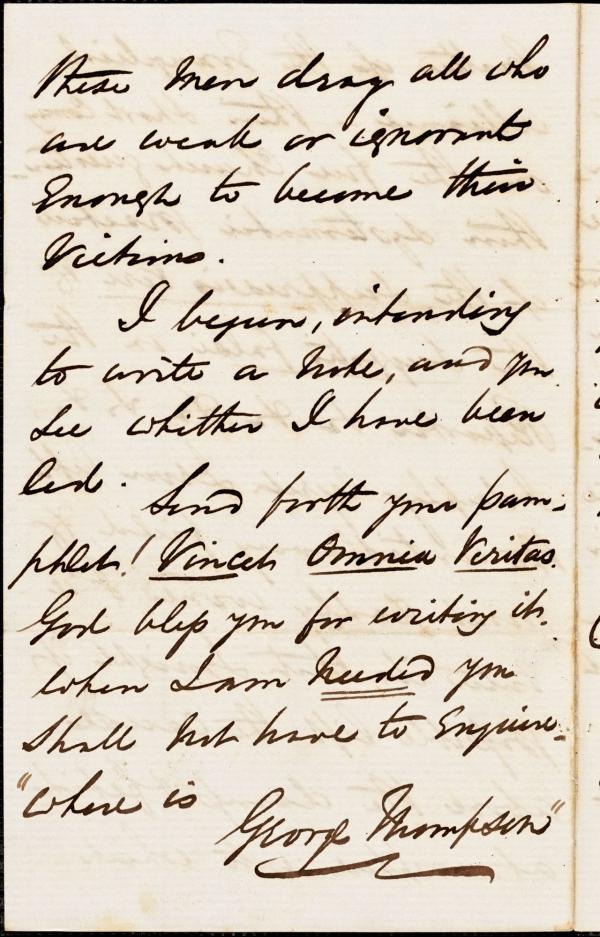 these men drag all who
are weak or ignorant
Enough to become their
Victims.
I began, intending
to write a Note, and you
See whither I have been
led.
Send forth your pam-
phlet! Vincet Omnia Veritas.
God bless you for writing it.
When I am Needed you
Shall Not have to Enquire-
"Where is
George Thompson"